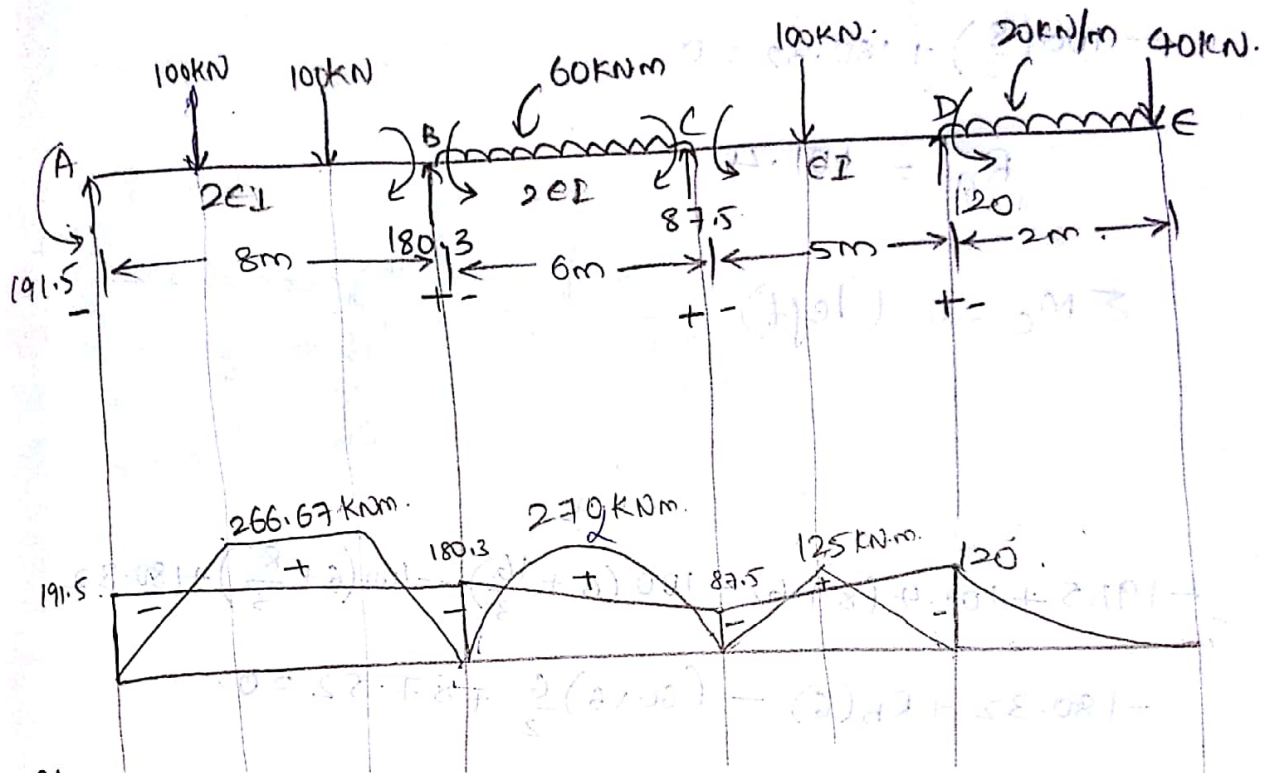 100KN 100KN 60KNm 100KN. 20KN/m 40KN.
A B C D E
2EI 2EI EI
191.5 180.3 87.5 120
8m 6m 5m 2m
- + - + - + -
266.67 KNm. 270KNm. 125 KN.m.
191.5 180.3 87.5 120
- + - + - + -